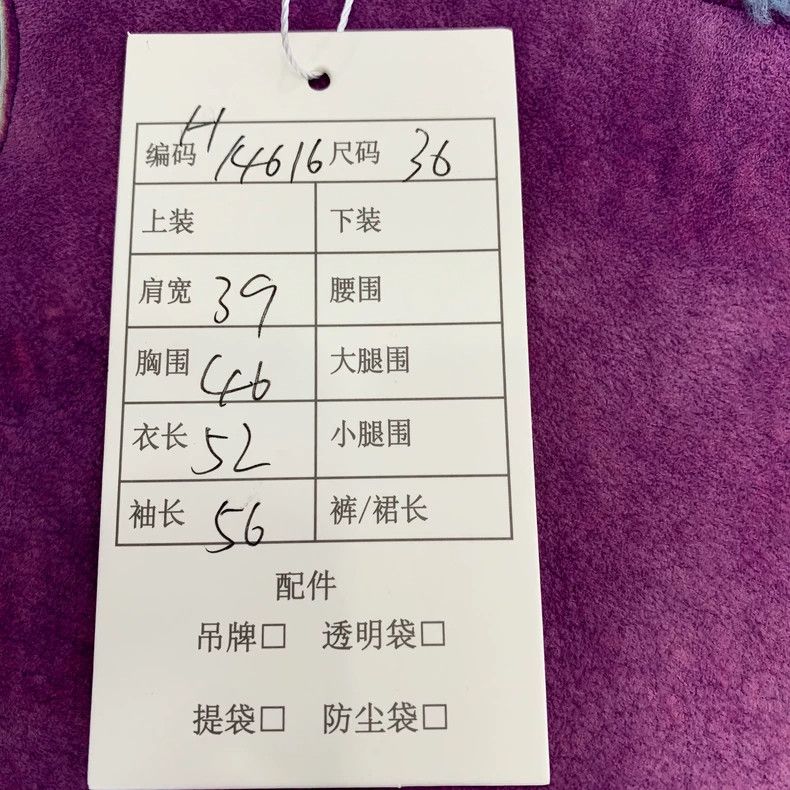 编码 H14616 尺码 36
上装 下装
肩宽 39 腰围
胸围 46 大腿围
衣长 52 小腿围
袖长 56 裤/裙长
配件
吊牌□ 透明袋□
提袋□ 防尘袋□